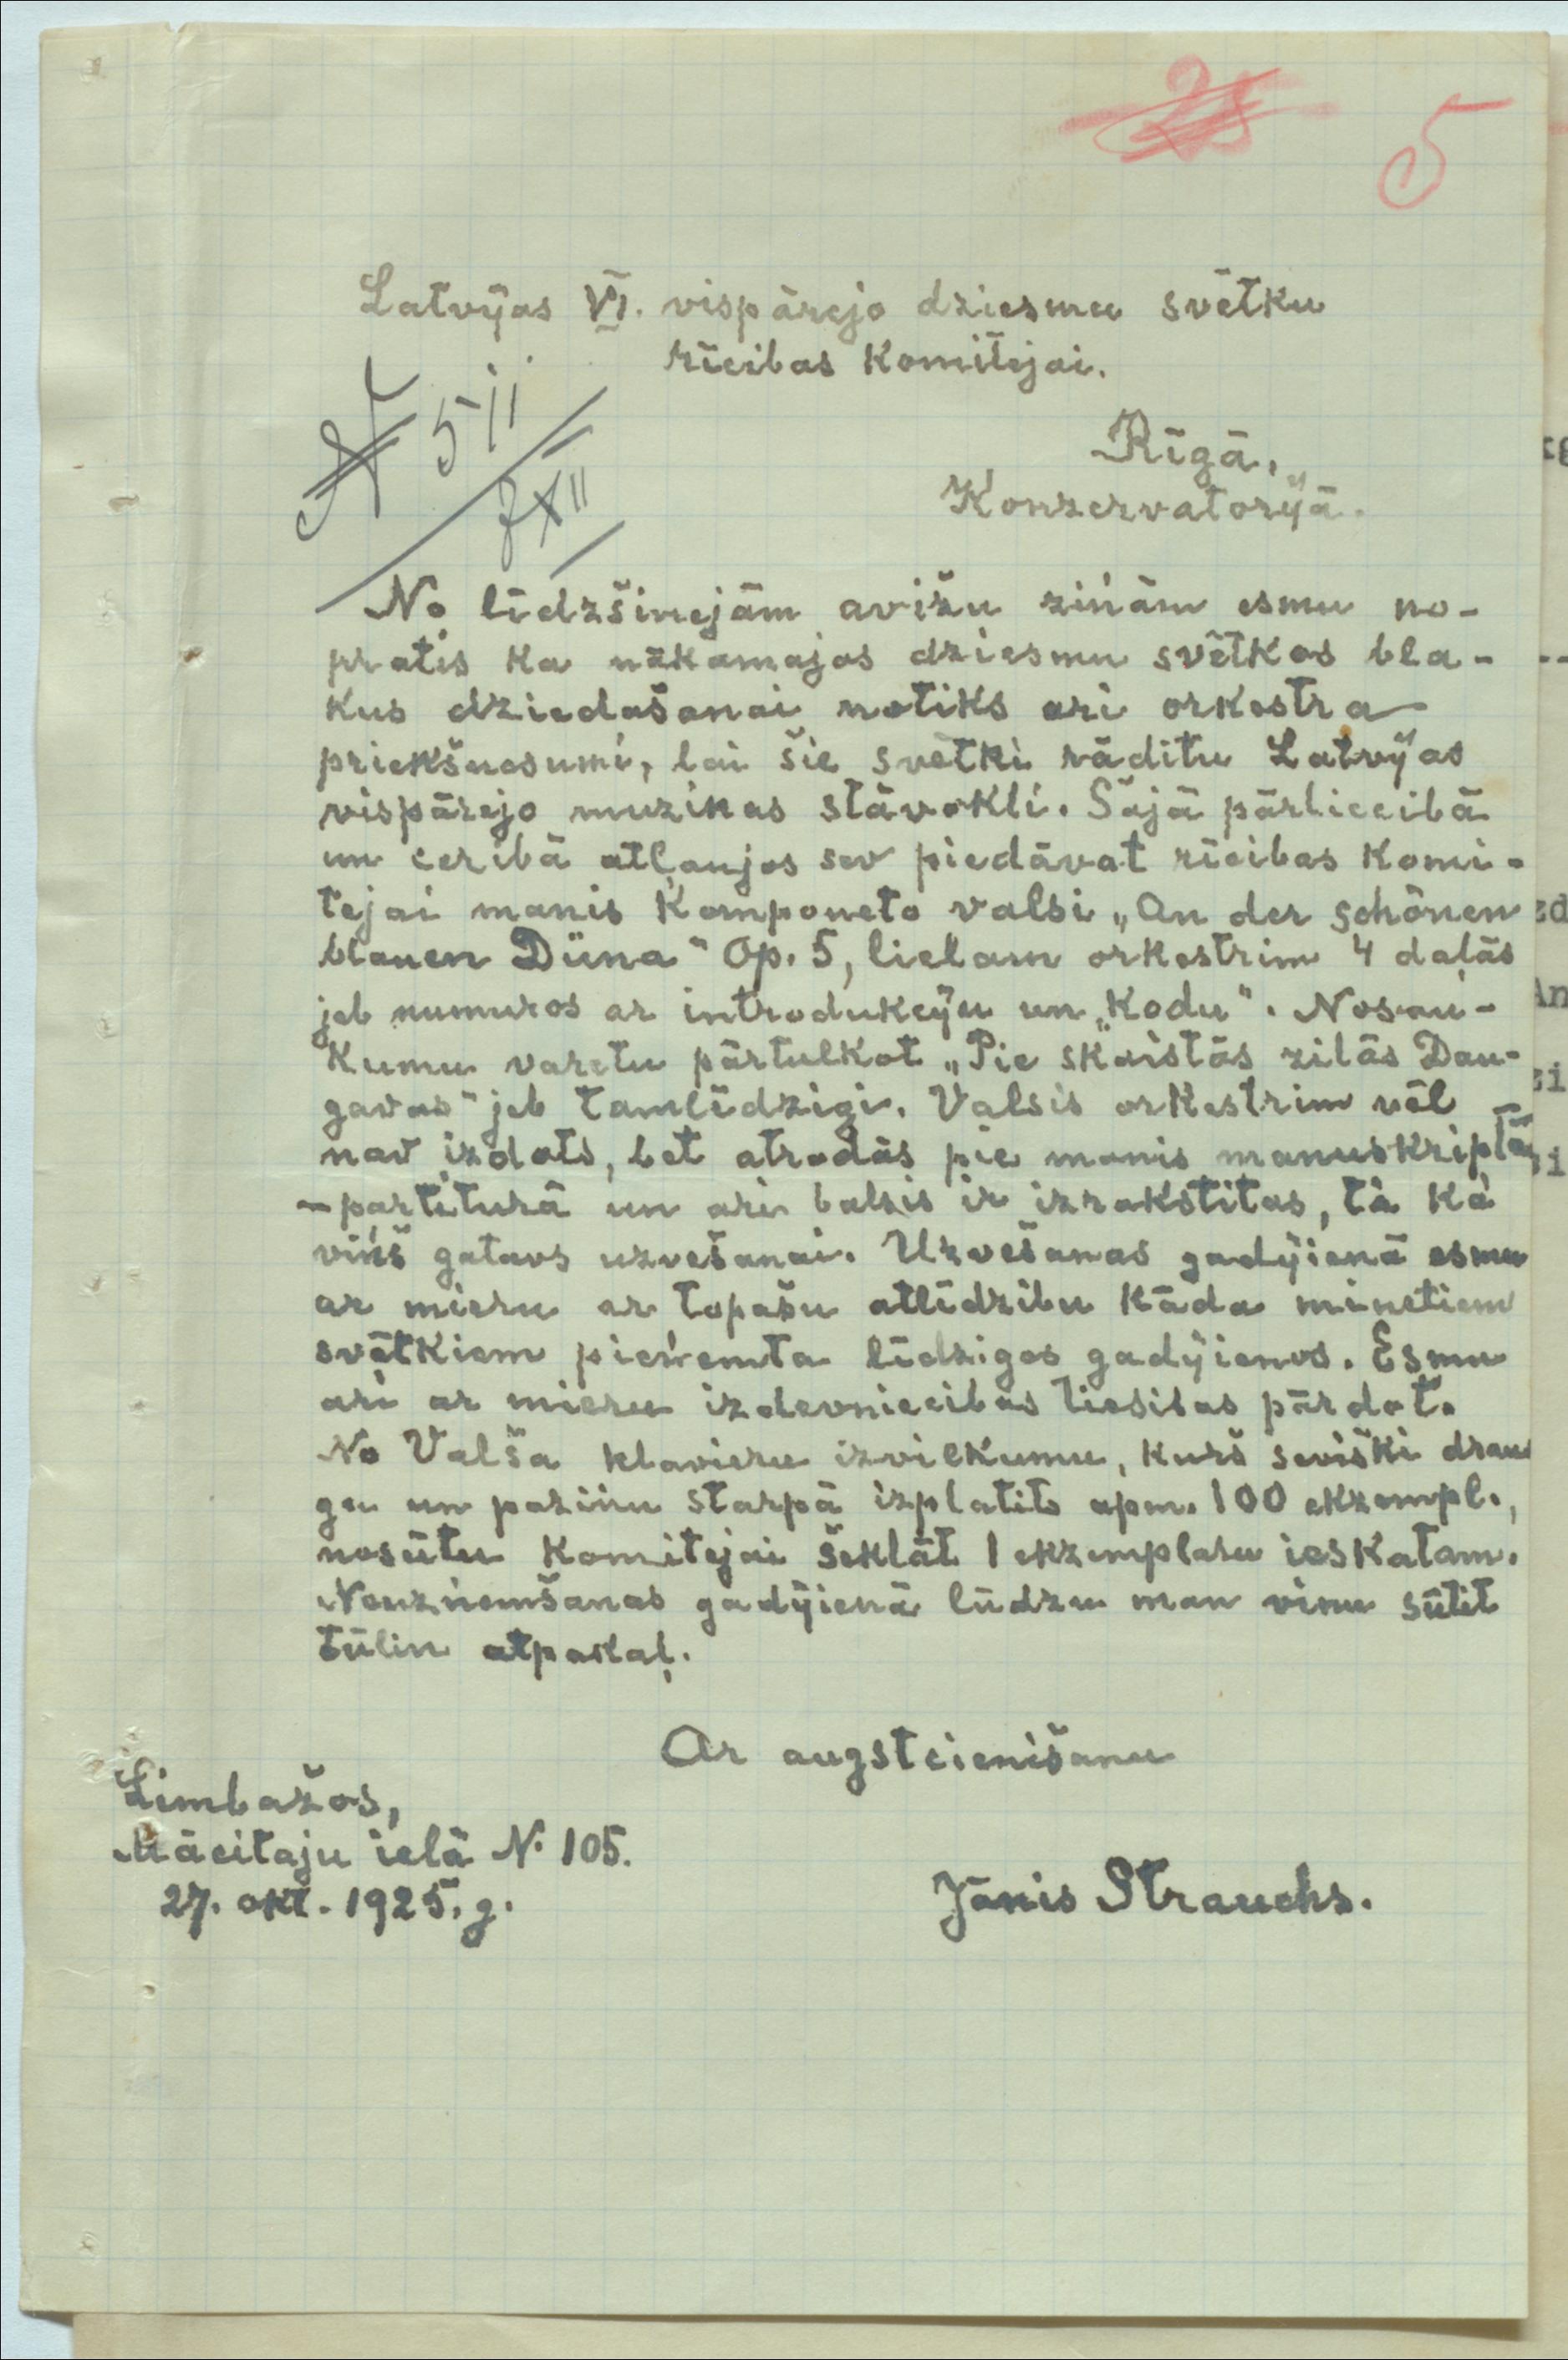 5
Latvijas VI. vispārejo dziesmu svētku
rīcibas Komitejai.
511
Rīgā,
Konzervatorijā.
XII
No līdzšinejām avižu ziņām esmu no-
pratis ka nākamajos dziesmu svētkos bla-
kus dziedašanai notiks ari orkestra
priekšnesumi, lai šie svētki rāditu Latvijas
vispārejo muzikas stāvokli. Šajā pārliecibā
un ceribā atļaujos sev piedāvat rīcibas Komi-
tejai manis Komponeto valsi „An der schönen
blauen Düna“ Op. 5, lielam orkestrim 4 daļās
jeb numuros ar introdukciju un „Kodu“. Nosau-
kumu varetu pārtulkot „Pie skaistās zilās Dau-
gavas“ jeb tamlīdzigi. Valsis orkestrim vēl
nav izdots, bet atrodās pie manis manuskriptā
-partiturā un ari balsis ir izrakstitas, tā kā
viņš gatavs uzvešanai. Uzvešanas gadijienā esmu
ar mieru ar topašu atlīdzibu kāda minetiem
svētkiem pieņemta līdzigos gadijienos. Esmu
ari ar mieru izdevniecibas tiesibas pārdot.
No Valša klavieru izvilkumu, kurš seviški drau
gu un paziņu starpā izplatits apm. 100 ekzempl.,
nosūtu Komitejai šeklāt 1 ekzemplaru ieskatam.
Neuzņemšanas gadijienā lūdzu man viņu sūtit
tūlin atpakaļ.
Ar augstcienišanu
Limbažos,
Mācitaju ielā N. 105.
27. okt. 1925. g.
Jānis Strauchs.